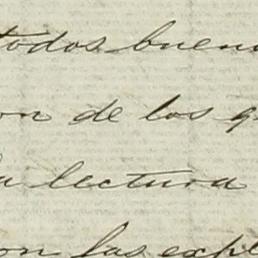 todos buen
on de los q
a lectura
on las expl